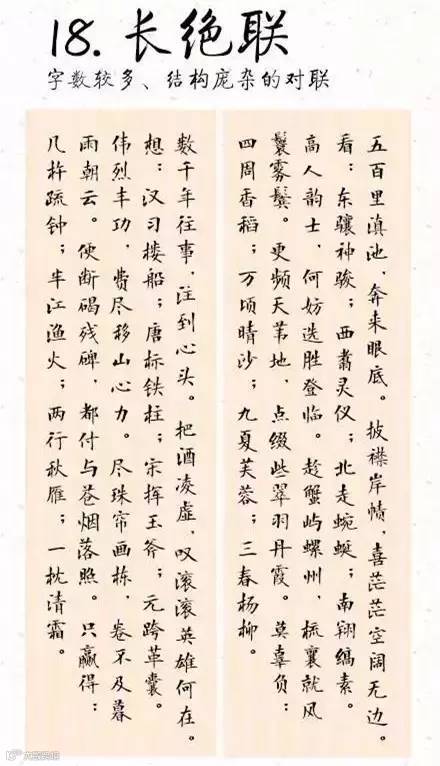 18. 长绝联
字数较多、结构庞杂的对联
五百里滇池、奔来眼底。披襟岸帻,喜茫茫空阔无边。
看:东骧神骏;西翥灵仪;北走蜿蜒;南翔缟素。
高人韵士,何妨选胜登临。趁蟹屿螺州,梳襄就风
鬟雾鬓。更频天苇地,点缀些翠羽丹霞。莫辜负:
四周香稻;万顷晴沙;九夏芙蓉;三春杨柳。
数千年往事,注到心头。把酒凌虚,叹滚滚英雄何在。
想:汉习楼船;唐标铁柱;宋挥玉斧;元跨革囊。
伟烈丰功,费尽移山心力。尽珠帘画栋,卷不及暮
雨朝云。便断碣残碑,都付与苍烟落照。只赢得:
几杵疏钟;半江渔火;两行秋雁;一枕清霜。